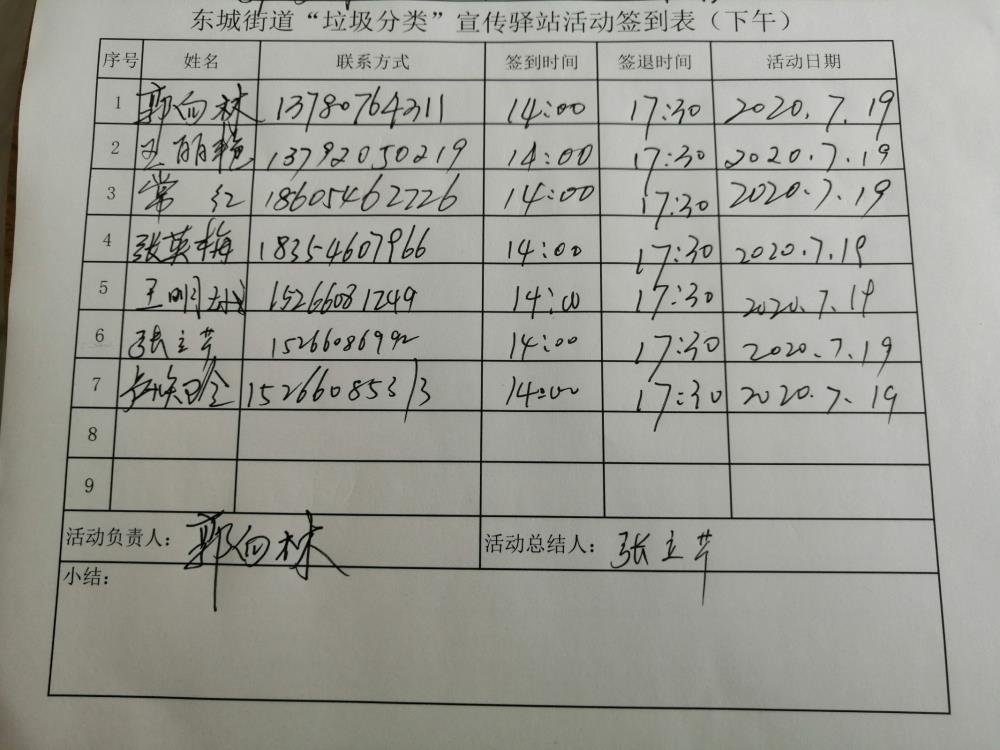 东城街道“垃圾分类”宣传驿站活动签到表（下午）
序号 姓名 联系方式 签到时间 签退时间 活动日期
1 郭向林 13780764311 14:00 17:30 2020.7.19
2 王丽艳 13792050219 14:00 17:30 2020.7.19
3 常红 18605462226 14:00 17:30 2020.7.19
4 张英梅 18354607966 14:00 17:30 2020.7.19
5 王明 15266081249 14:00 17:30 2020.7.19
6 张立芹 15266086992 14:00 17:30 2020.7.19
7 15266085313 14:00 17:30 2020.7.19
8
9
活动负责人：郭向林 活动总结人：张立芹
小结：